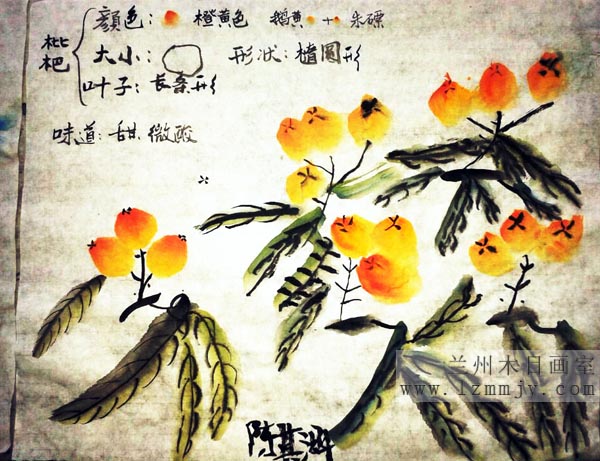 枇杷
颜色： 橙黄色 鹅黄 + 朱磦
大小： 形状：椭圆形
叶子：长条形
味道：甜 微酸
兰州木日画室
www.lzmmjy.com
陈其涵